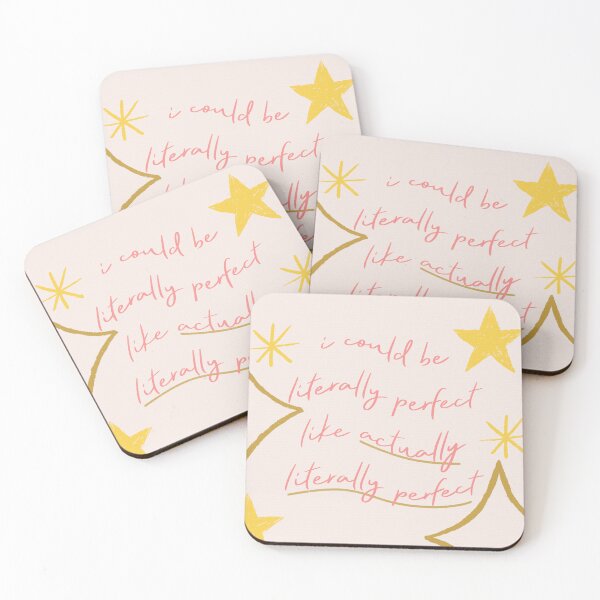 i could be
literally perfect
i could be
literally perfect
like actually
i could be
literally perfect
like actually
literally
i could be
literally perfect
like actually
literally perfect